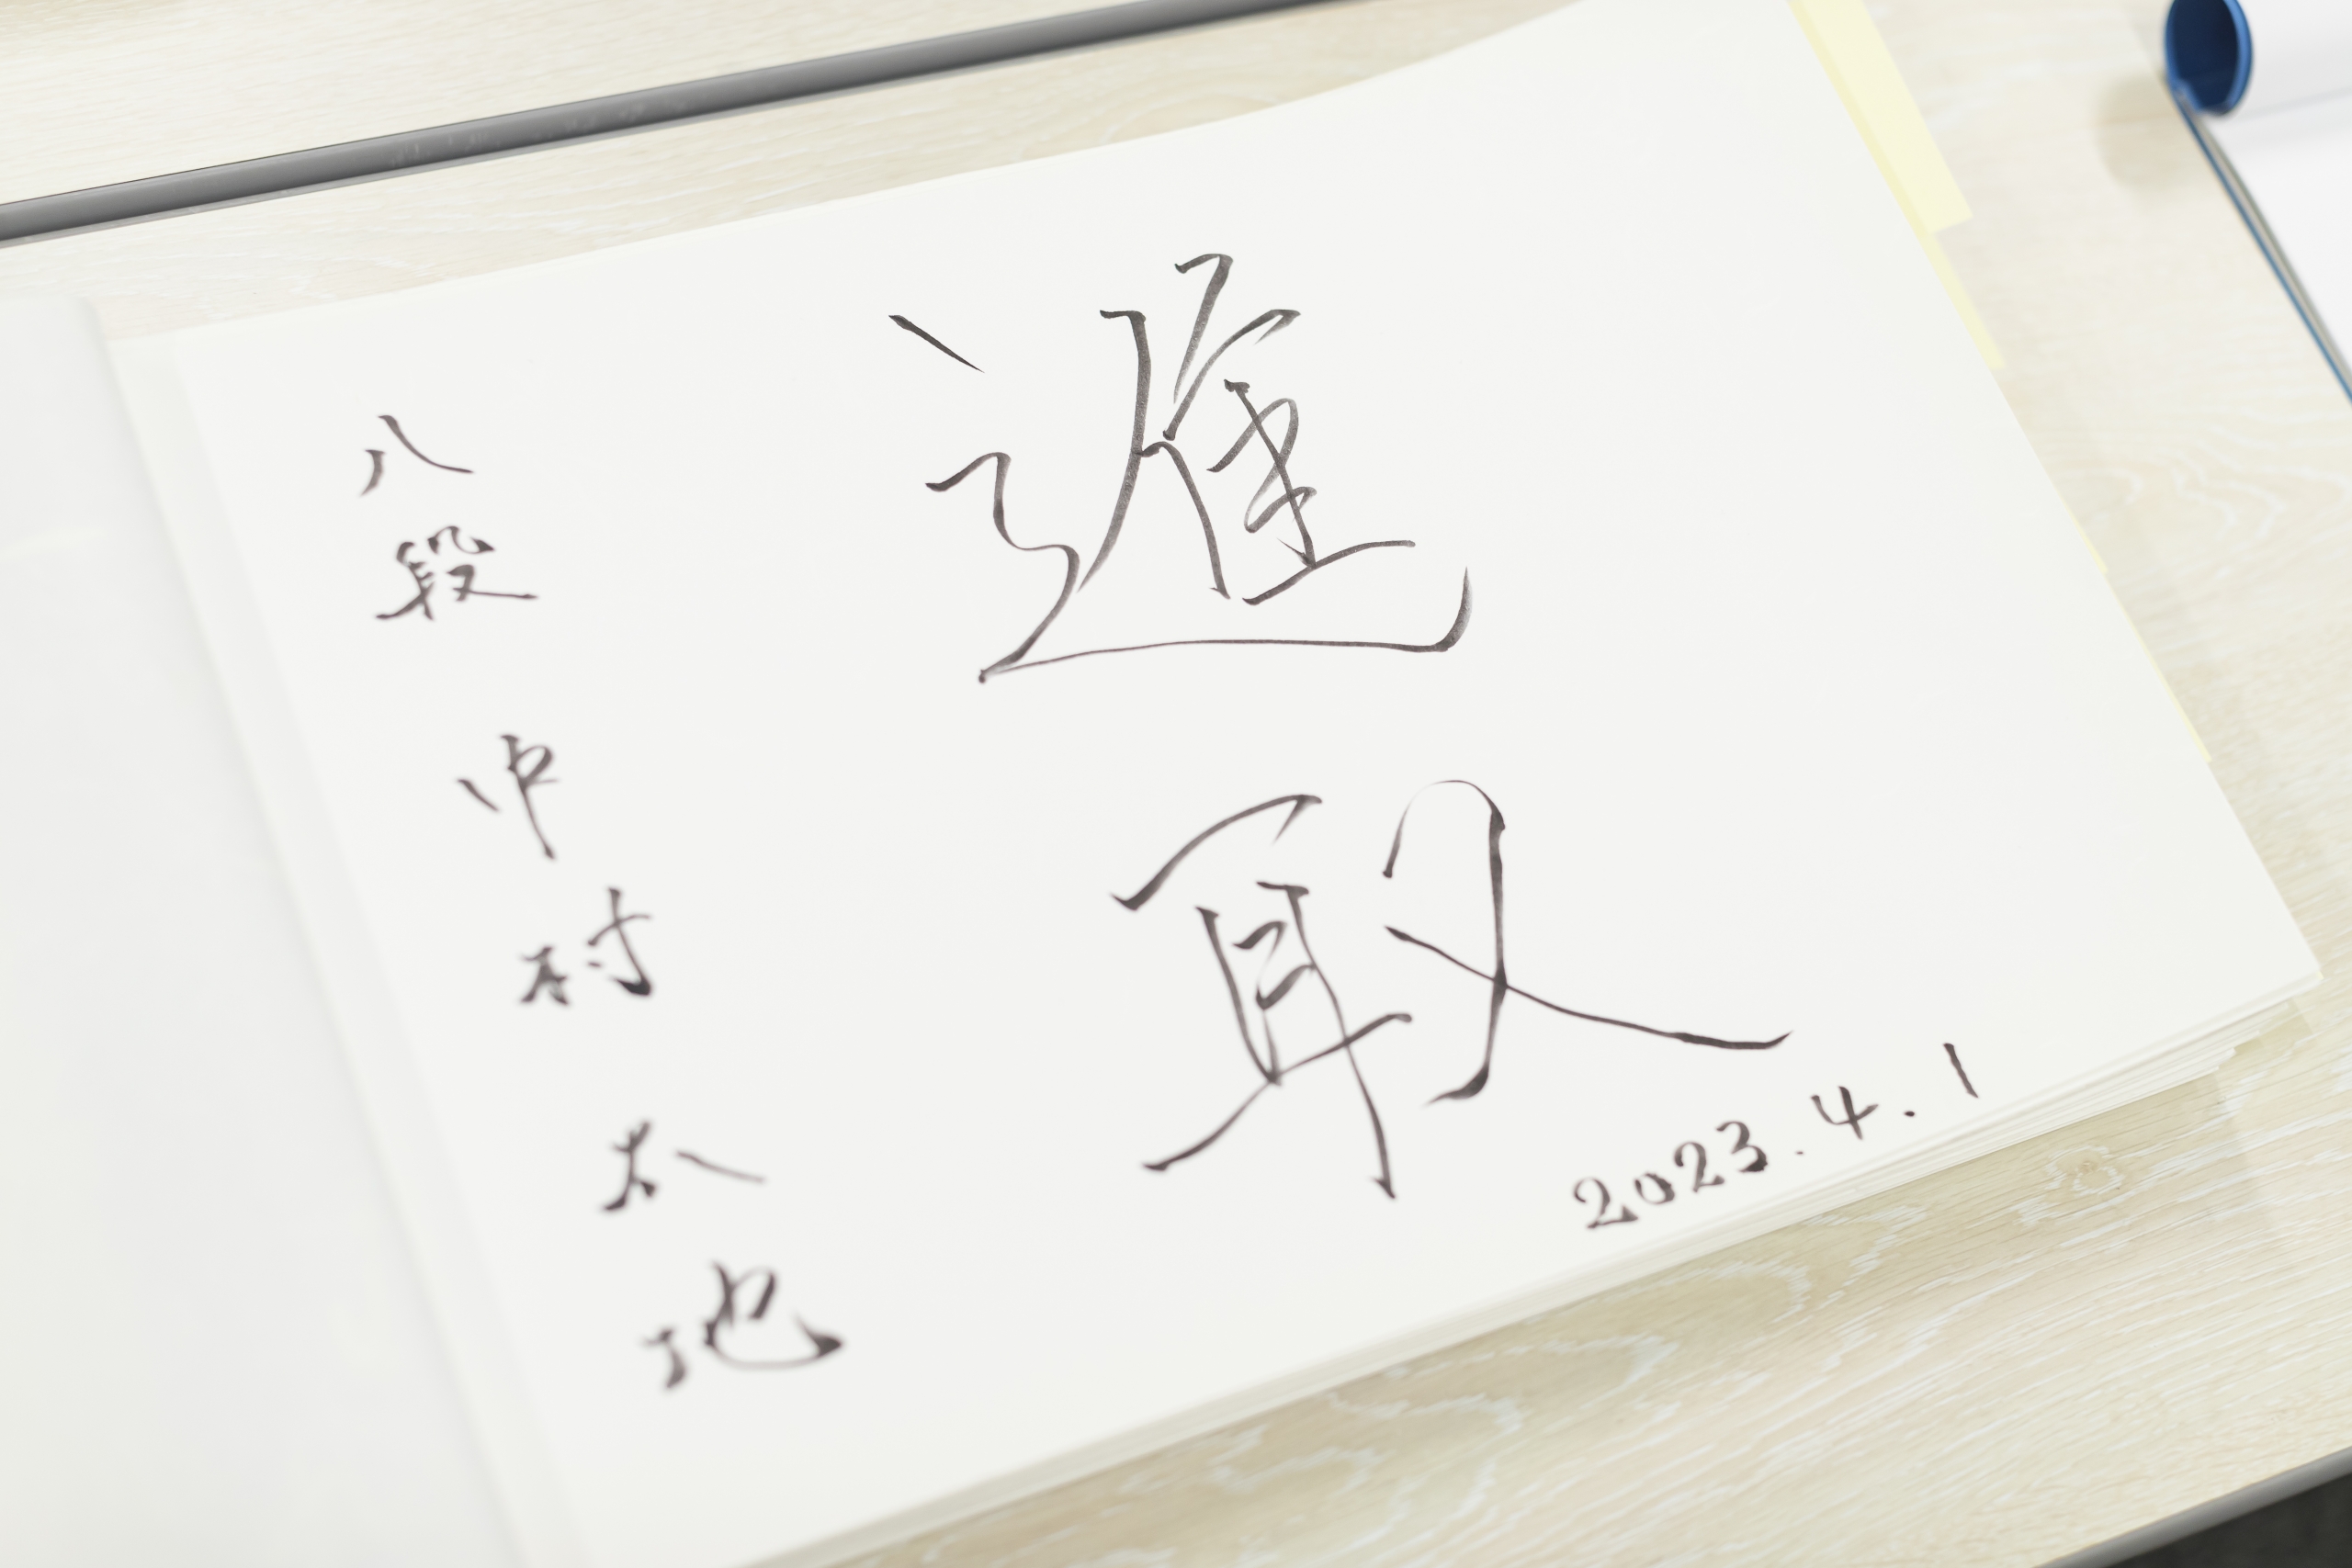 進取
2023.4.1
八段 中村太地